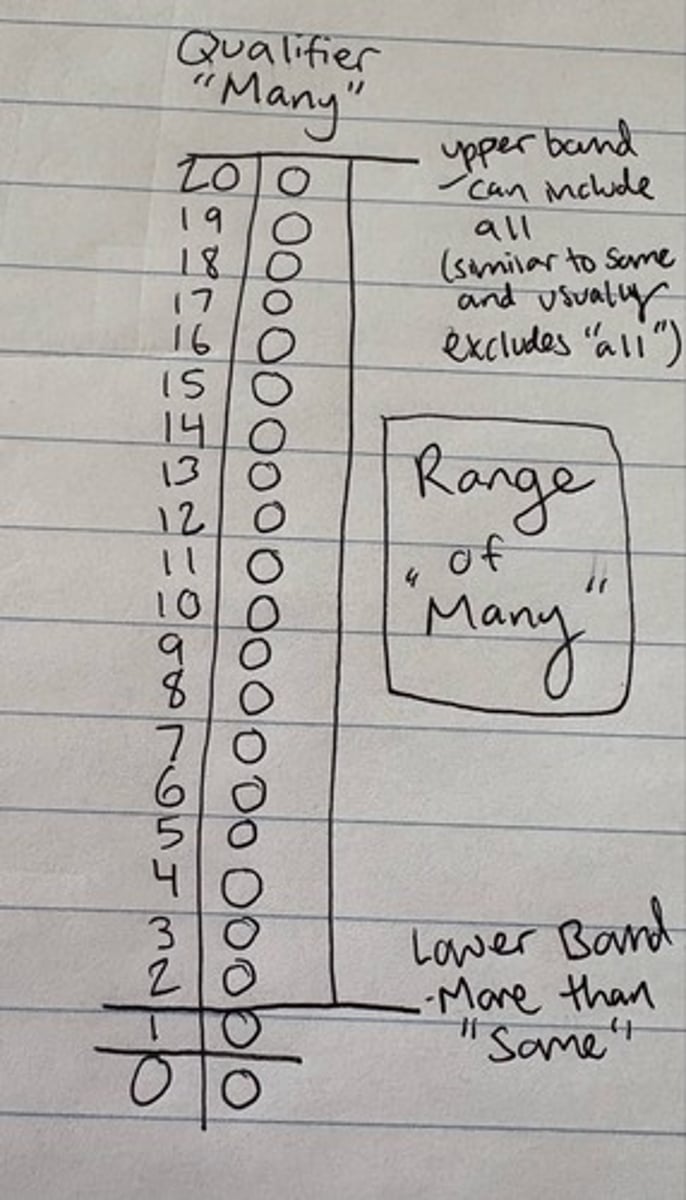 Qualifier
"Many"
20 O
19 O
18 O
17 O
16 O
15 O
14 O
13 O
12 O
11 O
10 O
9 O
8 O
7 O
6 O
5 O
4 O
3 O
2 O
1 O
0 O
upper band
-can include
all
(similar to some
and usually
excludes "all")
Range
of
"Many"
Lower Band
-More than
"Some"